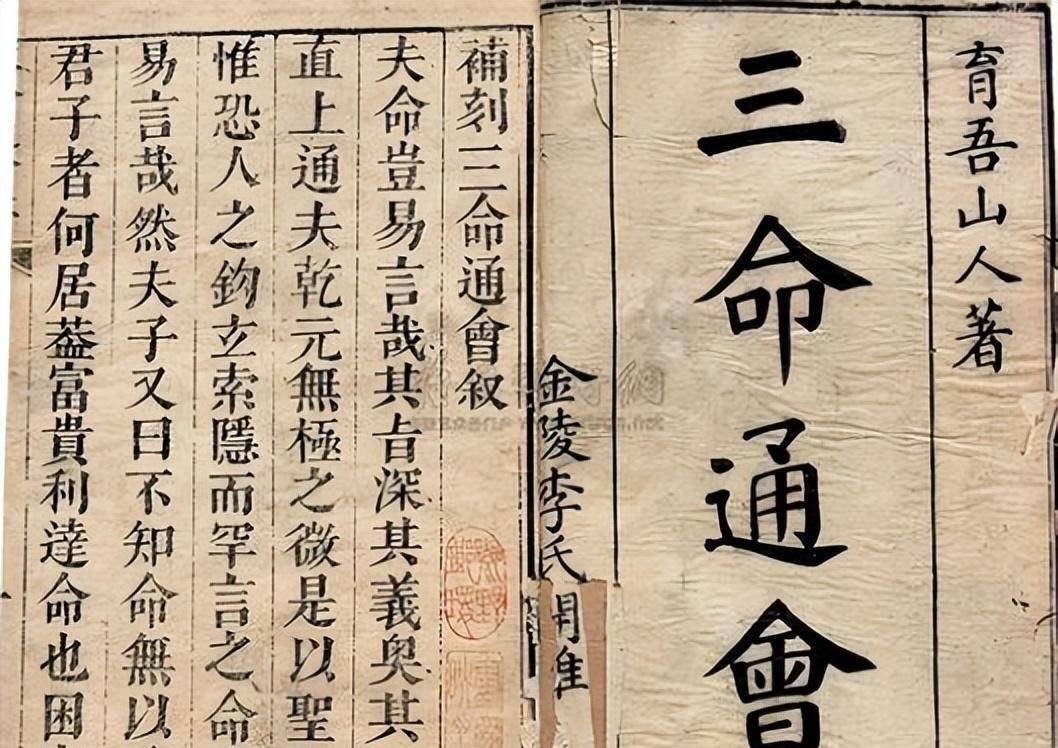 育吾山人著
三命通會
金陵李氏
補刻三命通會叙
夫命豈易言哉其㫖深其義奥其
直上通夫乾元無極之微是以聖
惟恐人之鈎玄索隱而罕言之命
易言哉然夫子又曰不知命無以
君子者何居葢富貴利達命也困